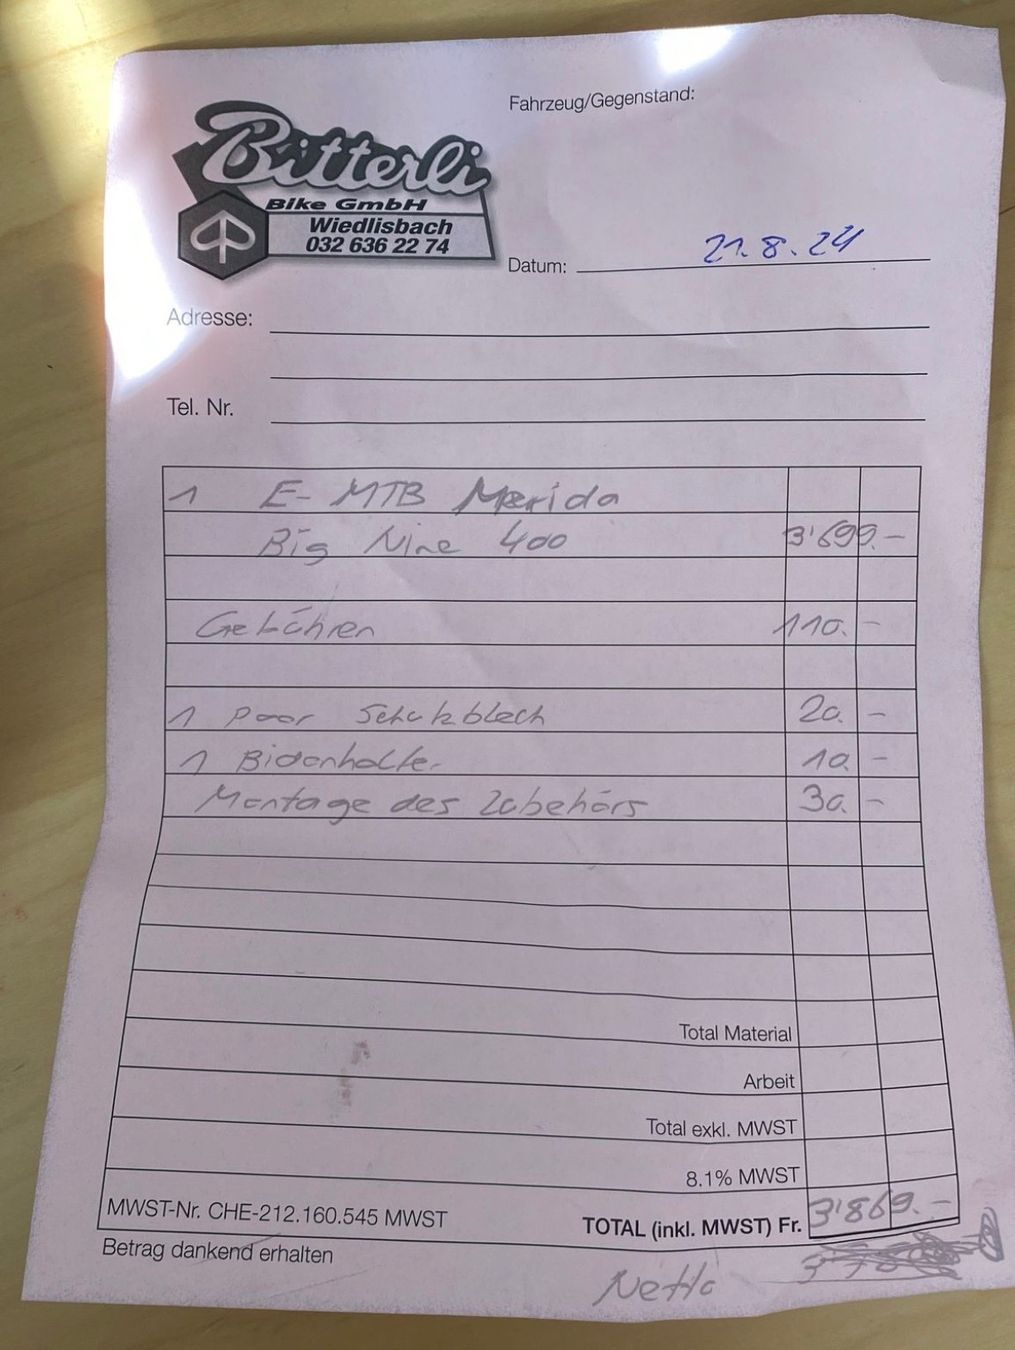 Bitterli
Bike GmbH
Wiedlisbach
032 636 22 74
Fahrzeug/Gegenstand:
Datum: 21.8.24
Adresse:
Tel. Nr.
1 E-MTB Merida
Big Nine 400 3'699.-
Gebühren 110.-
1 Paar Schutzblech 20.-
1 Bidonhalter 10.-
Montage des Zubehörs 30.-
Total Material
Arbeit
Total exkl. MWST
8.1% MWST
MWST-Nr. CHE-212.160.545 MWST
TOTAL (inkl. MWST) Fr. 3'869.-
Betrag dankend erhalten
Netto